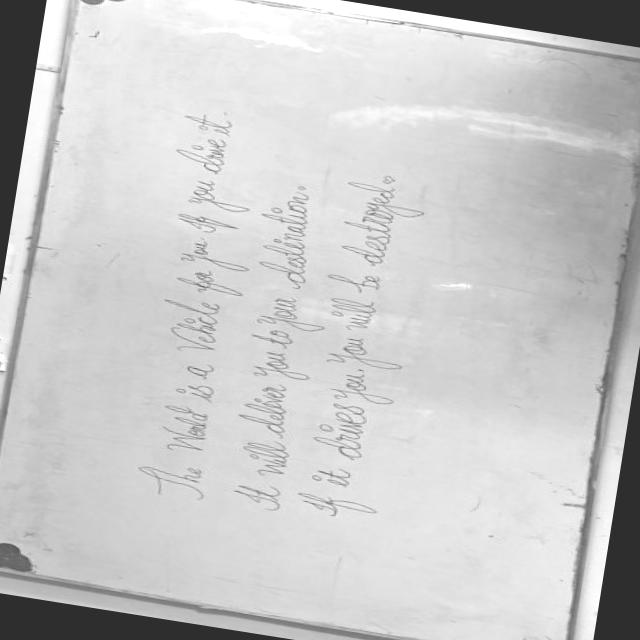 The World is a Vehicle for you If you drive it.
It will deliver you to your destination.
If it drives you, you will be destroyed.